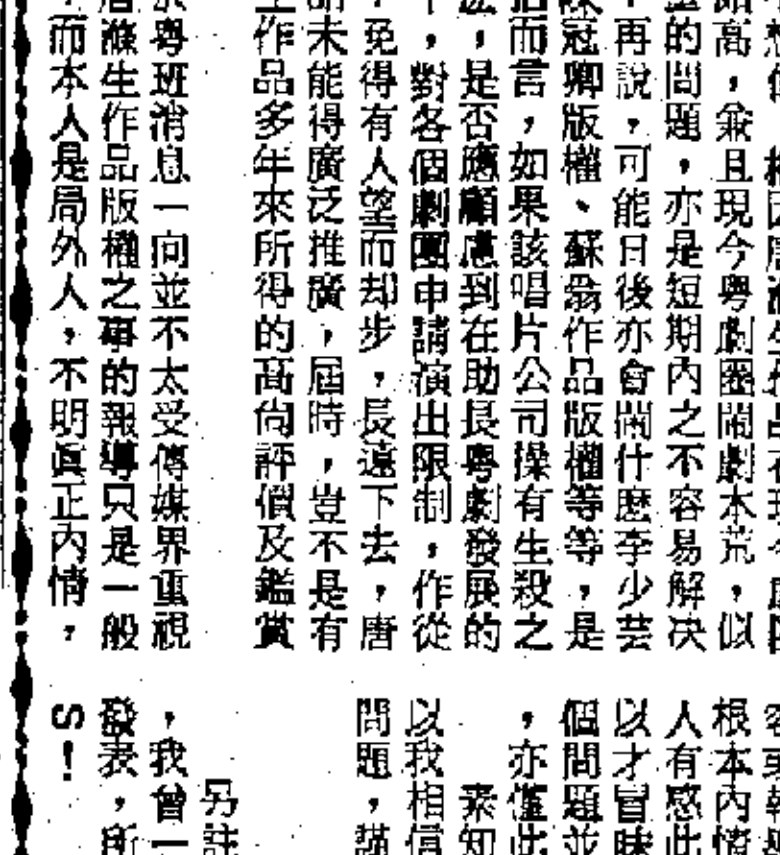 高，兼且現今粵劇圈鬧劇本荒，似
的問題，亦是短期內之不容易解决
，再說，可能日後亦會鬧什麽李少芸
冠卿版權、蘇翁作品版權等等，是
而言，如果該唱片公司操有生殺之
，是否應顧慮到在助長粵劇發展的
，對各個劇團申請演出限制，作從
，免得有人望而却步，長遠下去，唐
未能得廣泛推廣，屆時，豈不是有
作品多年來所得的高尚評價及鑑賞
粵班消息一向並不太受傳媒界重視
滌生作品版權之事的報導只是一般
，而本人是局外人，不明眞正內情，
根本內情
人有感此
以才冒昧
個問題並
，亦僅此
素知
以我相信
問題，謹
另註
，我曾一
發表，所
S！